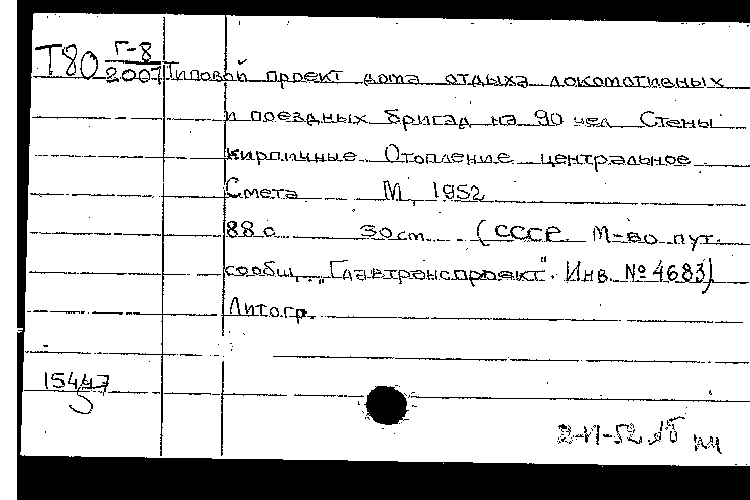 Т80 Г-8/2007 Типовой проект дома отдыха локомотивных
и поездных бригад на 90 чел Стены
кирпичные Отопление центральное.
Смета М, 1952
88 с 30 см (СССР. М-во пут.
сообщ. "Главтранспроект". Инв. № 4683)
Литогр.
15447
5
2-VI-52